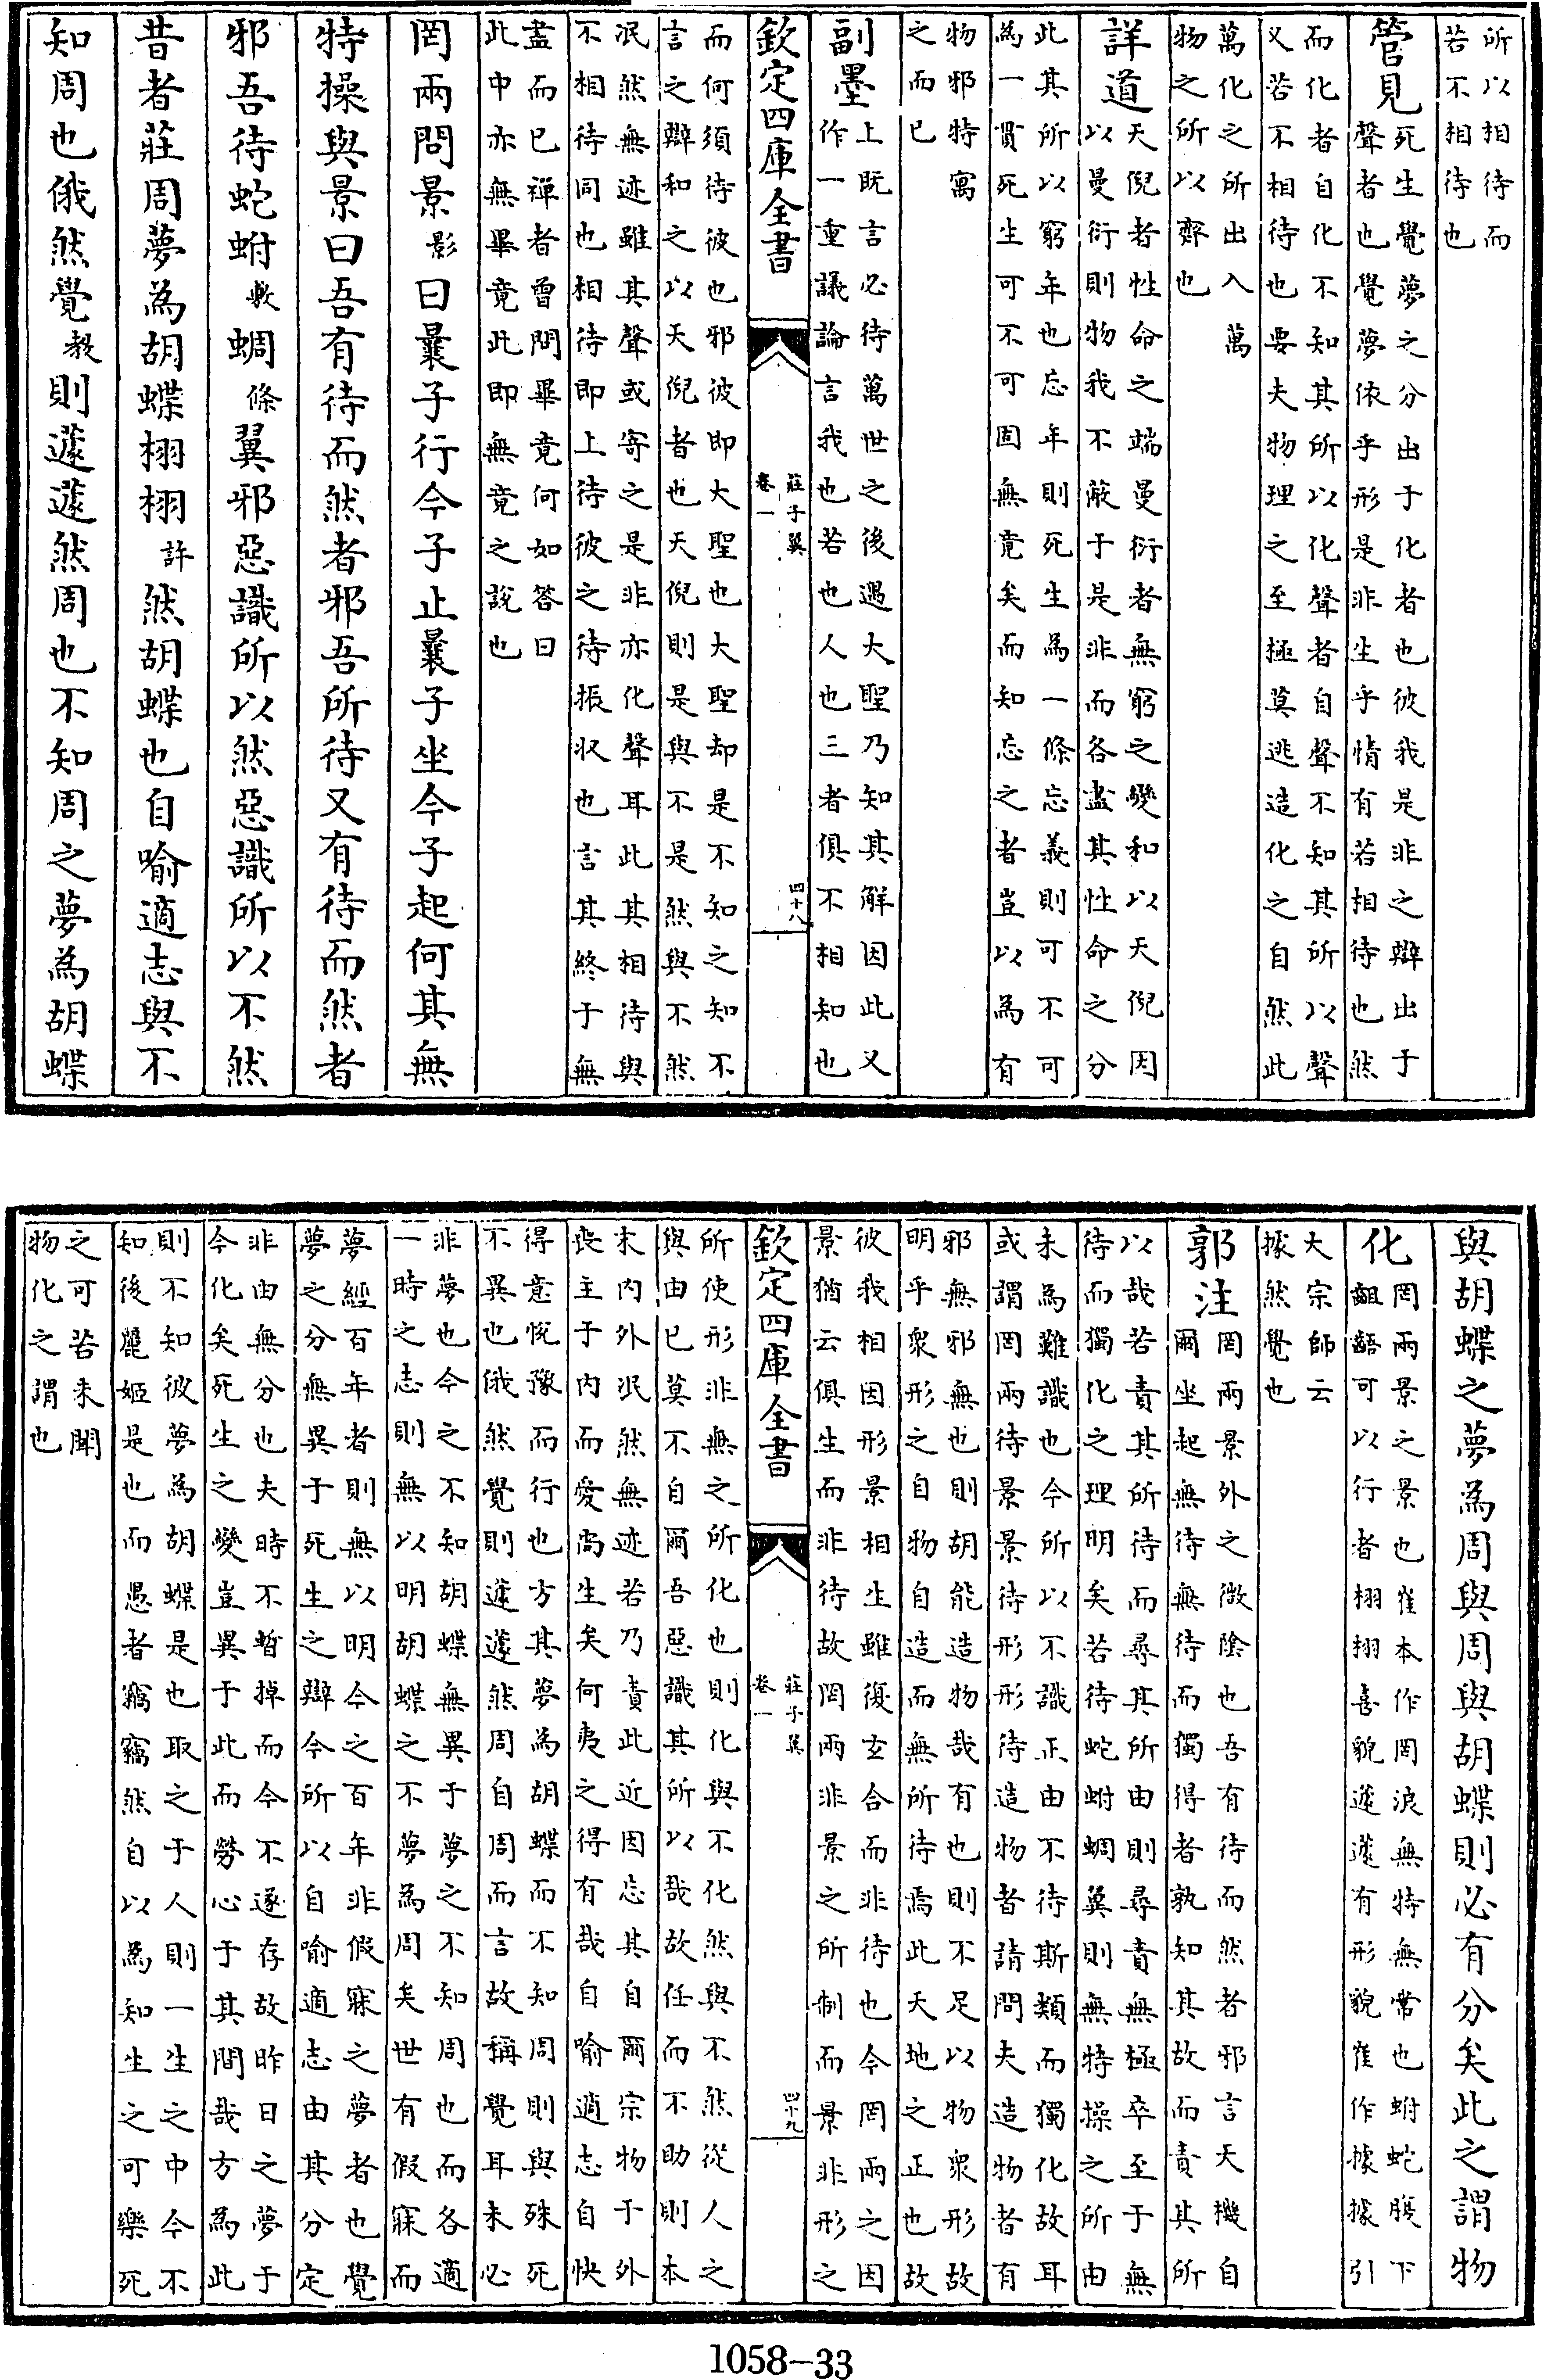 所以相待而
若不相待也
管見死生覺夢之分出于化者也彼我是非之辯出于
聲者也覺夢依乎形是非生乎情有若相待也然
而化者自化不知其所以化聲者自聲不知其所以聲
又若不相待也要夫物理之至極莫逃造化之自然此
萬化之所出入萬
物之所以齊也
詳道天倪者性命之端曼衍者無窮之變和以天倪因
以曼衍則物我不蔽于是非而各盡其性命之分
此其所以窮年也忘年則死生為一條忘義則可不可
為一貫死生可不可固無竟矣而知忘之者豈以為有
物邪特寓
之而已
副墨上既言必待萬世之後遇大聖乃知其解因此又
作一重議論言我也若也人也三者俱不相知也
欽定四庫全書
莊子翼
卷一
四十八
而何須待彼也邪彼即大聖也大聖却是不知之知不
言之辯和之以天倪者也天倪則是與不是然與不然
泯然無迹雖其聲或寄之是非亦化聲耳此其相待與
不相待同也相待即上待彼之待振收也言其終于無
盡而已禪者曾問畢竟何如答曰
此中亦無畢竟此即無竟之說也
罔兩問景影曰曩子行今子止曩子坐今子起何其無
特操與景曰吾有待而然者邪吾所待又有待而然者
邪吾待蛇蚹敷蜩條翼邪惡識所以然惡識所以不然
昔者莊周夢為胡蝶栩栩許然胡蝶也自喻適志與不
知周也俄然覺教則蘧蘧然周也不知周之夢為胡蝶
與胡蝶之夢為周與周與胡蝶則必有分矣此之謂物
化罔兩景之景也崔本作罔浪無特無常也蚹蛇腹下
齟齬可以行者栩栩喜貌蘧蘧有形貌崔作據據引
大宗師云
據然覺也
郭注罔兩景外之微陰也吾有待而然者邪言天機自
爾坐起無待無待而獨得者孰知其故而責其所
以哉若責其所待而尋其所由則尋責無極卒至于無
待而獨化之理明矣若待蛇蚹蜩翼則無特操之所由
未為難識也今所以不識正由不待斯類而獨化故耳
或謂罔兩待景景待形形待造物者請問夫造物者有
邪無邪無也則胡能造物哉有也則不足以物衆形故
明乎衆形之自物自造而無所待焉此天地之正也故
彼我相因形景相生雖復玄合而非待也今罔兩之因
景猶云俱生而非待故罔兩非景之所制而景非形之
欽定四庫全書
莊子翼
卷一
四十九
所使形非無之所化也則化與不化然與不然從人之
與由已莫不自爾吾惡識其所以哉故任而不助則本
末内外泯然無迹若乃責此近因忘其自爾宗物于外
喪主于内而愛尚生矣何夷之得有哉自喻適志自快
得意悅豫而行也方其夢為胡蝶而不知周則與殊死
不異也俄然覺則蘧蘧然周自周而言故稱覺耳未必
非夢也今之不知胡蝶無異于夢之不知周也而各適
一時之志則無以明胡蝶之不夢為周矣世有假寐而
夢經百年者則無以明今之百年非假寐之夢者也覺
夢之分無異于死生之辯今所以自喻適志由其分定
非由無分也夫時不暫掉而今不遂存故昨日之夢于
今化矣死生之變豈異于此而勞心于其間哉方為此
則不知彼夢為胡蝶是也取之于人則一生之中今不
知後麗姬是也而愚者竊竊然自以為知生之可樂死
之可苦未聞
物化之謂也
1058-33